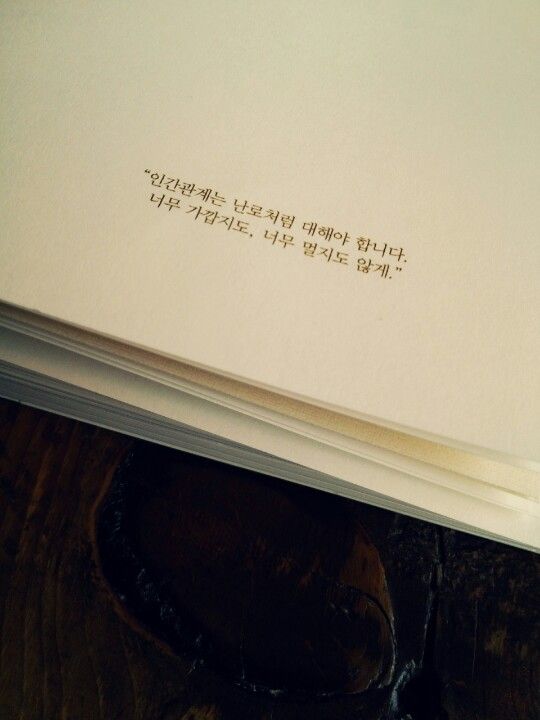 “인간관계는 난로처럼 대해야 합니다.
너무 가깝지도, 너무 멀지도 않게.”